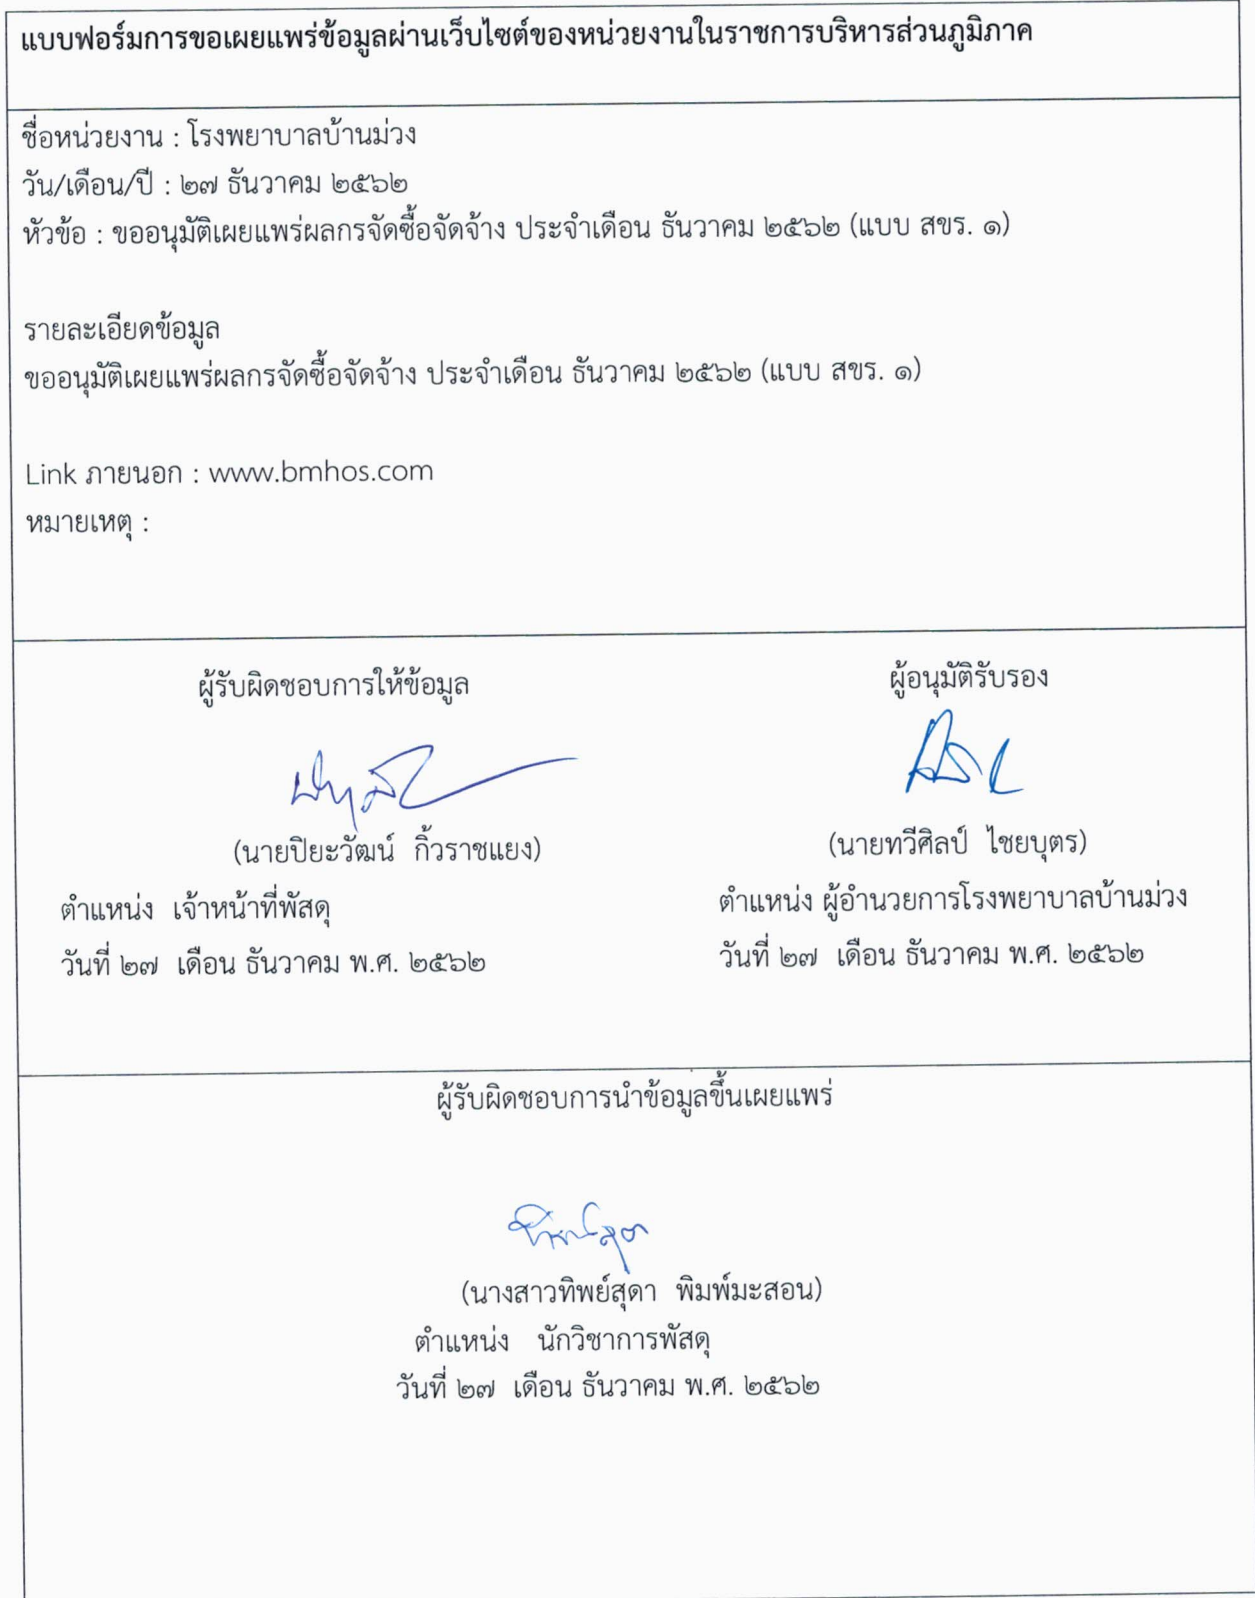 แบบฟอร์มการขอเผยแพร่ข้อมูลผ่านเว็บไซต์ของหน่วยงานในราชการบริหารส่วนภูมิภาค
ชื่อหน่วยงาน : โรงพยาบาลบ้านม่วง
วัน/เดือน/ปี : ๒๗ ธันวาคม ๒๕๖๒
หัวข้อ : ขออนุมัติเผยแพร่ผลกรจัดซื้อจัดจ้าง ประจำเดือน ธันวาคม ๒๕๖๒ (แบบ สขร. ๑)
รายละเอียดข้อมูล
ขออนุมัติเผยแพร่ผลกรจัดซื้อจัดจ้าง ประจำเดือน ธันวาคม ๒๕๖๒ (แบบ สขร. ๑)
Link ภายนอก : www.bmhos.com
หมายเหตุ :
ผู้รับผิดชอบการให้ข้อมูล
(นายปิยะวัฒน์ กิ้วราชแยง)
ตำแหน่ง เจ้าหน้าที่พัสดุ
วันที่ ๒๗ เดือน ธันวาคม พ.ศ. ๒๕๖๒
ผู้อนุมัติรับรอง
(นายทวีศิลป์ ไชยบุตร)
ตำแหน่ง ผู้อำนวยการโรงพยาบาลบ้านม่วง
วันที่ ๒๗ เดือน ธันวาคม พ.ศ. ๒๕๖๒
ผู้รับผิดชอบการนำข้อมูลขึ้นเผยแพร่
(นางสาวทิพย์สุดา พิมพ์มะสอน)
ตำแหน่ง นักวิชาการพัสดุ
วันที่ ๒๗ เดือน ธันวาคม พ.ศ. ๒๕๖๒